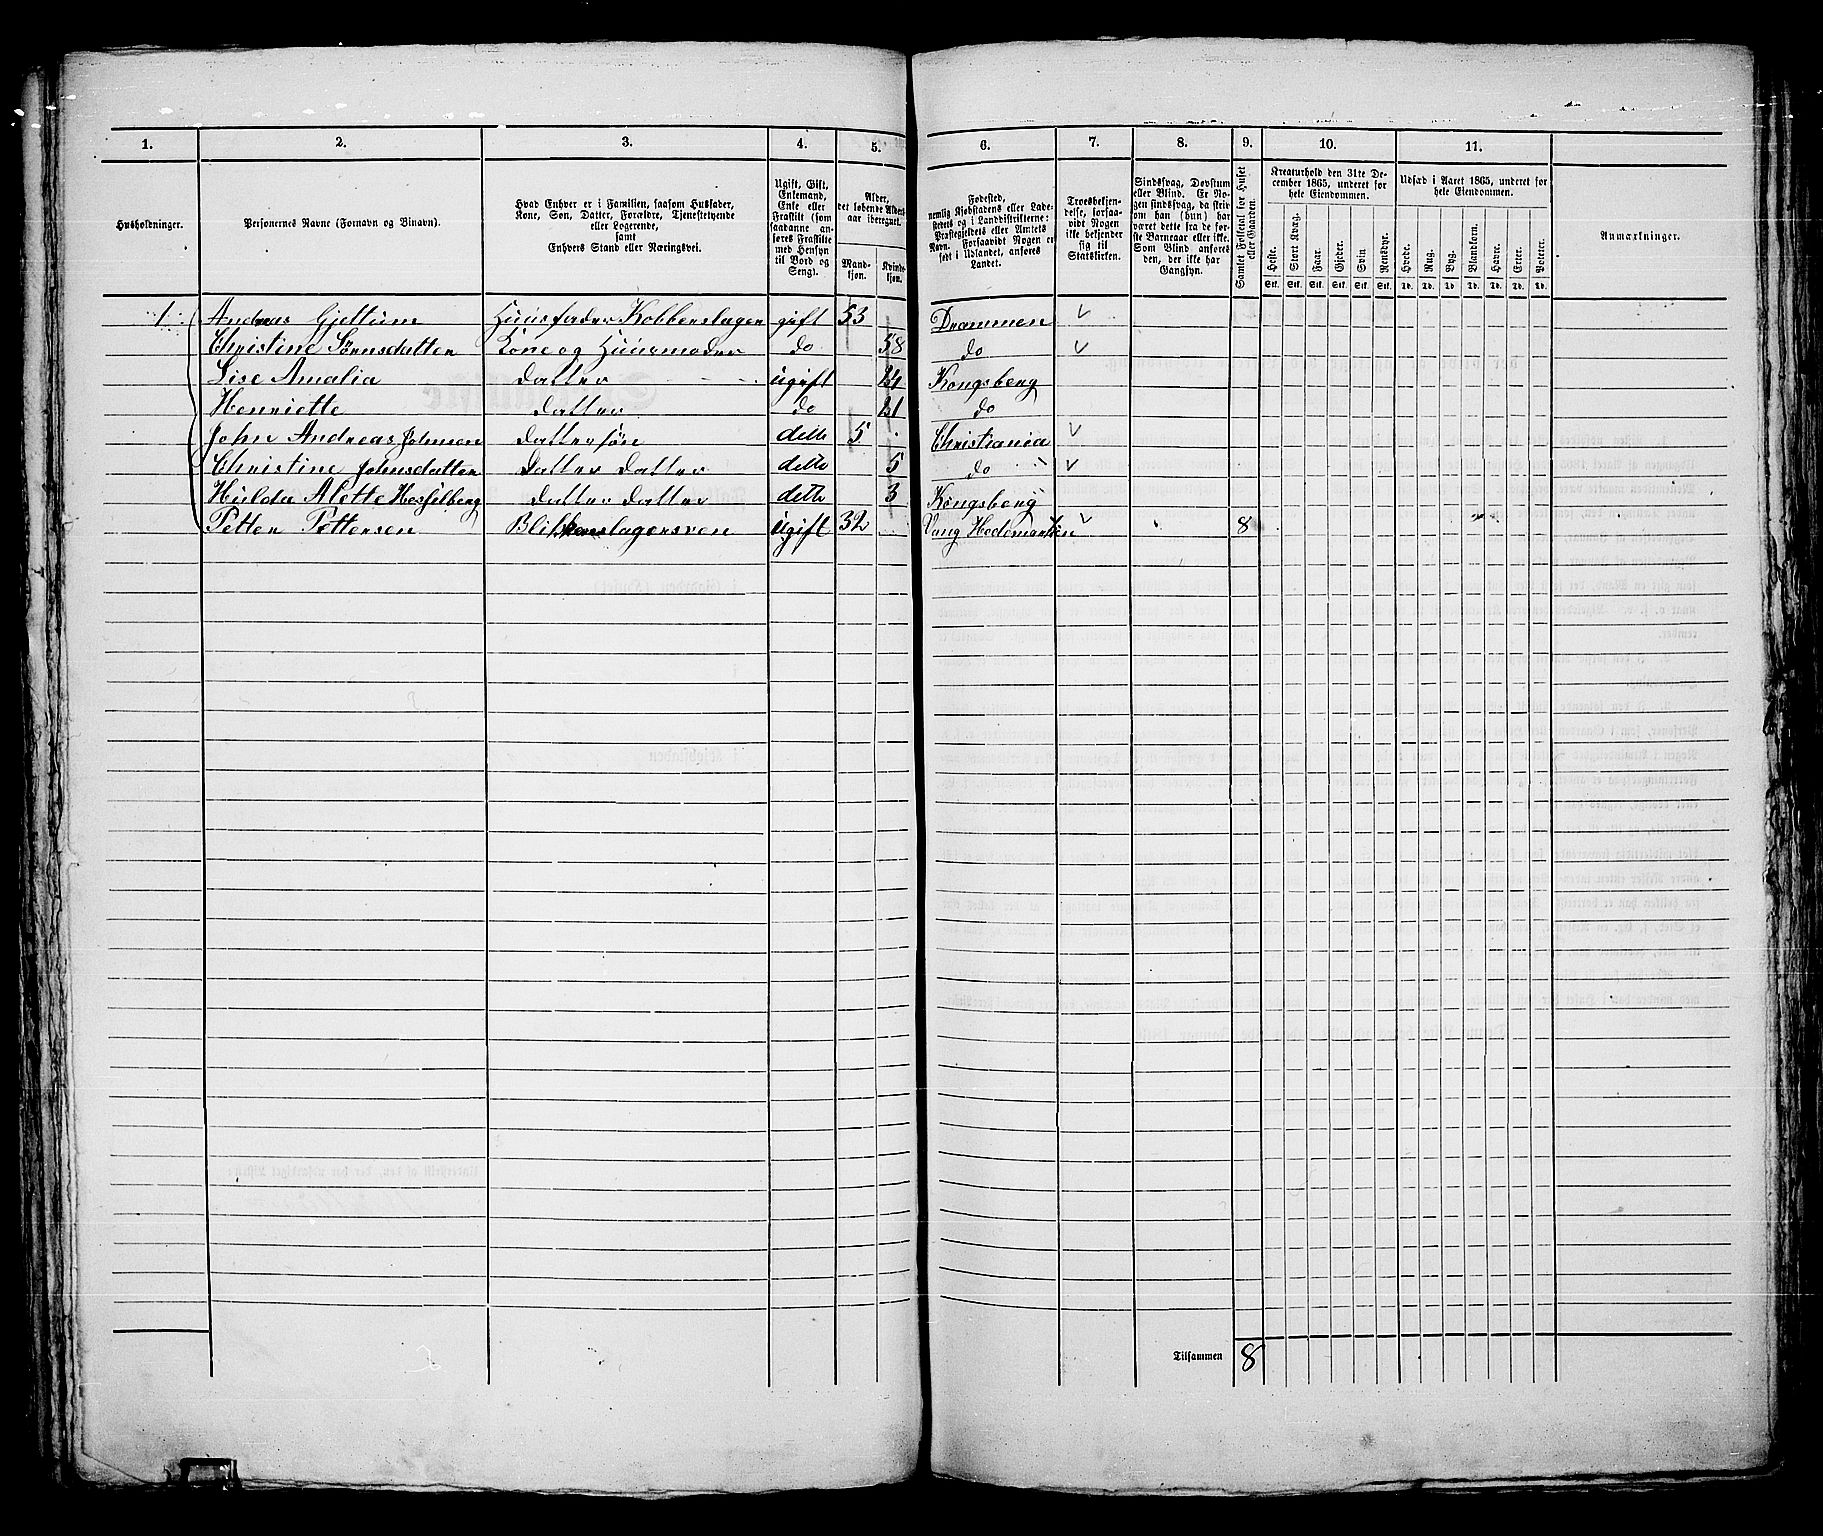 1. 2. 3. 4. 5. 6. 7. 8. 9. 10. 11.
Husholdninger.
Personernes Navne (Fornavn og Binavn).
Hvad Enhver er i Familien, saasom Husfader,
Kone, Søn, Datter, Forældre, Tjenestetyende
eller Logerende,
samt
Enhvers Stand eller Næringsvei.
Ugift, Gift,
Enkemand,
Enke eller
Fraskilt (som
saadanne an-
føres Fraskilte
med Hensyn
til Bord og
Seng).
Alder,
det løbende Alders-
aar iberegnet.
Mand-
kjøn.
Kvinde-
kjøn.
Fødested,
nemlig Kjøbstadens eller Lade-
stedets og i Landdistrikterne:
Præstegjeldets eller Amtets
Navn. Forsaavidt Nogen er
født i Udlandet, anføres
Landet.
Troesbekjen-
delse, forsaa-
vidt Nogen
ikke bekjender
sig til
Statskirken.
Sindssvag, Døvstum
eller Blind. Er No-
gen sindssvag, da skriv
om han (hun) har
været dette fra de før-
ste Barneaar eller ikke.
Som Blind anføres
den, der ikke har
Gangsyn.
Samlet Folketal for Huset
eller Gaarden.
Kreaturhold den 31te De-
cember 1865, underet for
hele Eiendommen.
Heste. Stort Kvæg. Faar. Gjeder. Svin Rensdyr.
Stk. Stk. Stk. Stk. Stk. Stk.
Udsæd i Aaret 1865, underet for
hele Eiendommen.
Hvede. Rug. Byg. Blandkorn. Havre. Erter. Poteter.
Td. Td. Td. Td. Td. Td. Td.
Anmærkninger.
1. Andreas Gjettum Huusfader Kobberslager gift 53 Drammen
Christine Sørnsdatter Kone og Huusmoder do 58 do
Lise Amalia datter ugift Kongsberg
Henriette datter do 21 do
John Andreas Johnsen dattersøn ditto 5 Christiania
Christine Johnsdatter datter datter ditto 5 do
Hulda Alette Hesselberg datter datter ditto 3 Kongsberg
Petter Pettersen Blikkenslagersven ugift 32 Vang Hedemarken 8
Tilsammen 8